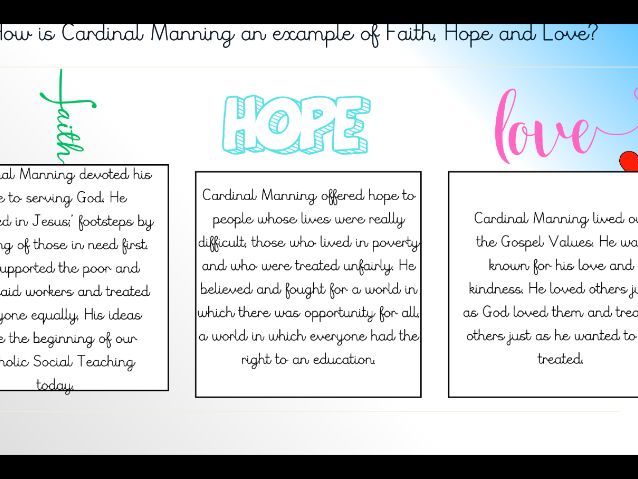 How is Cardinal Manning an example of Faith, Hope and Love?
faith
HOPE
love
nal Manning devoted his
e to serving God. He
ed in Jesus;' footsteps by
ng of those in need first.
upported the poor and
aid workers and treated
yone equally. His ideas
e the beginning of our
holic Social Teaching
today.
Cardinal Manning offered hope to
people whose lives were really
difficult; those who lived in poverty
and who were treated unfairly. He
believed and fought for a world in
which there was opportunity for all,
a world in which everyone had the
right to an education.
Cardinal Manning lived ou
the Gospel Values. He wa
known for his love and
kindness. He loved others ju
as God loved them and trea
others just as he wanted to
treated.